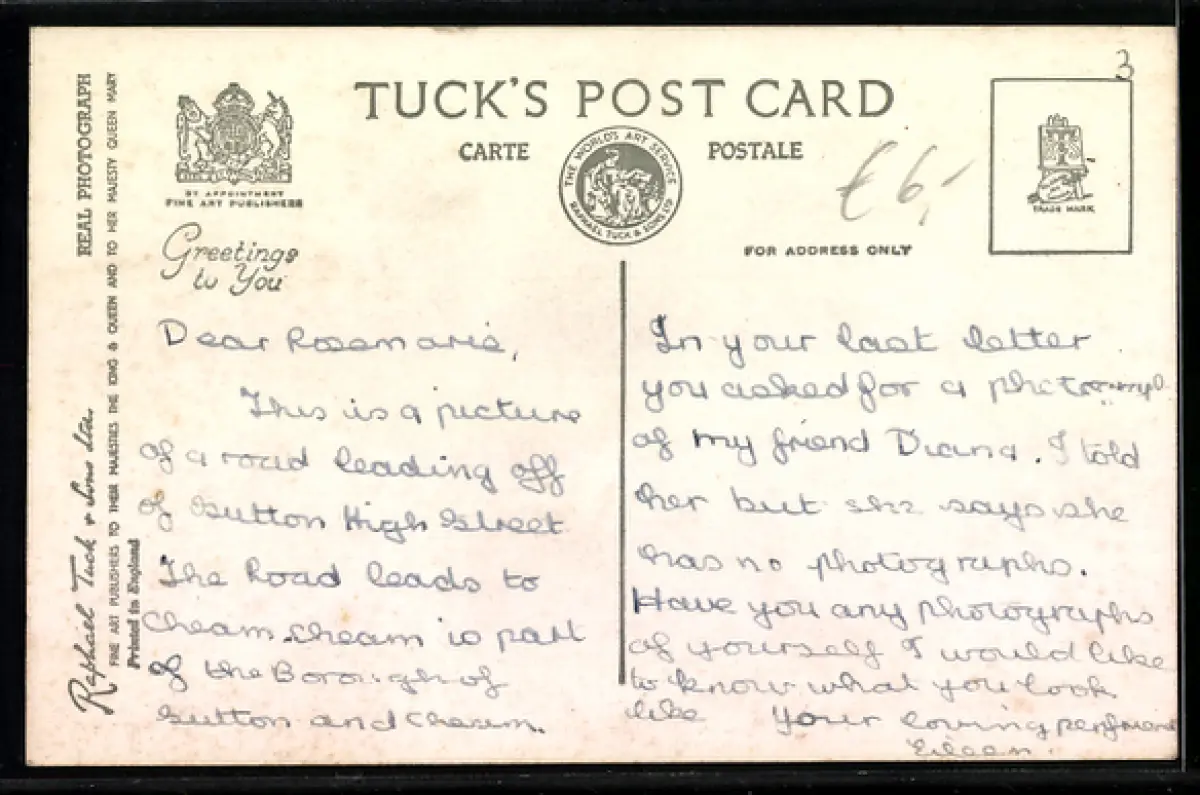 3
TUCK'S POST CARD
CARTE POSTALE
THE WORLD'S ART SERVICE
RAPHAEL TUCK & SONS LTD
BY APPOINTMENT
FINE ART PUBLISHERS
TRADE MARK
€6,-
FOR ADDRESS ONLY
Greetings
to You
REAL PHOTOGRAPH
Raphael Tuck & Sons Ltd.
FINE ART PUBLISHERS TO THEIR MAJESTIES THE KING & QUEEN AND TO HER MAJESTY QUEEN MARY
Printed in England
Dear Rosemarie,
This is a picture
of a road leading off
of Sutton High Street
The Road leads to
Cheam. Cheam is part
of the Borough of
Sutton and Cheam.
In your last letter
you asked for a
of my friend Diana. I told
her but she says she
has no photographs.
Have you any photographs
of yourself I would like
to know what you look
like Your loving penfriend
Eileen.